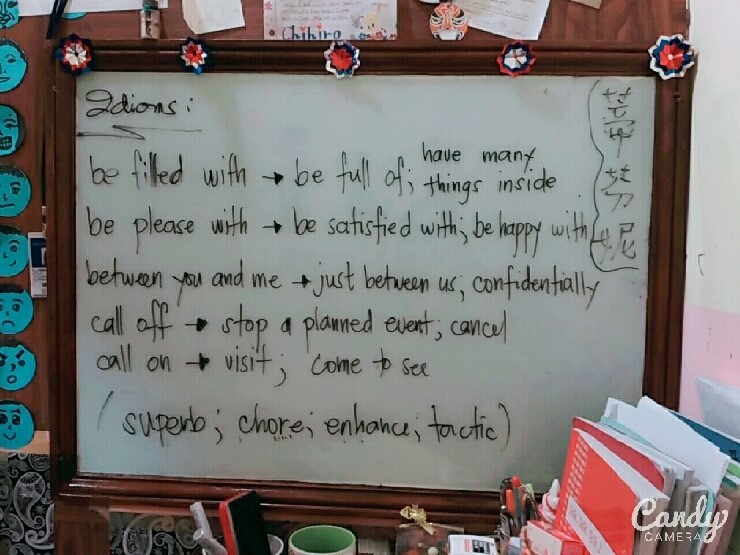 Chihiro
Idioms:
be filled with → be full of; have many things inside
be please with → be satisfied with; be happy with
between you and me → just between us; confidentially
call off → stop a planned event; cancel
call on → visit; come to see
(superb; chore; enhance; tactic)
Candy
CAMERA